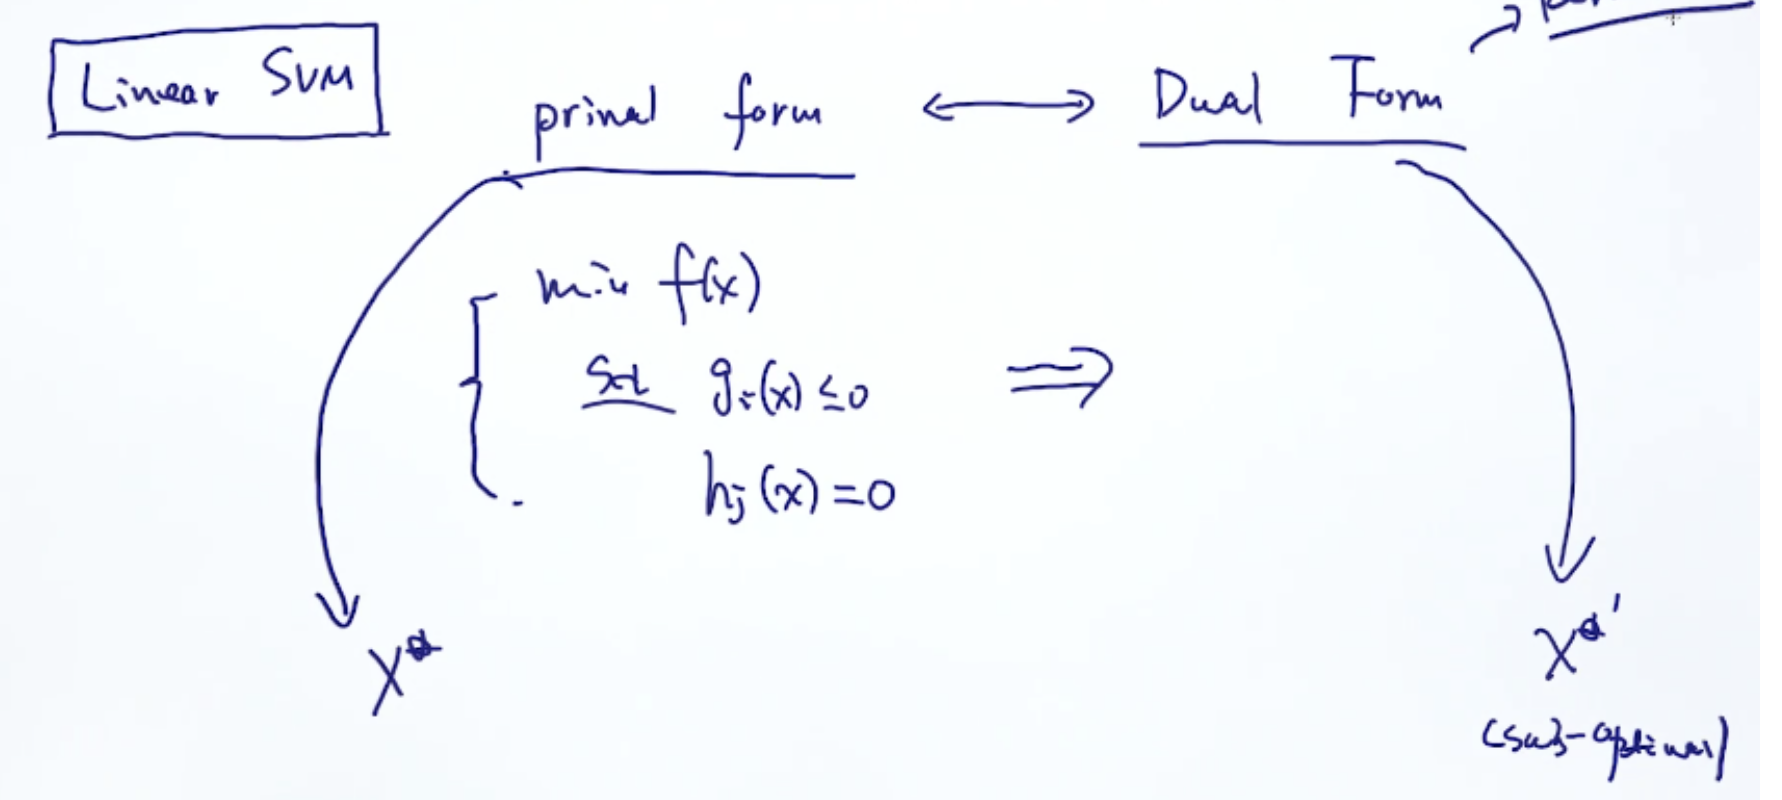 Linear SVM
prinal form ↔ Dual Form →
min f(x)
s.t gᵢ(x) ≤0 ⇒
hⱼ(x) =0
X* X*'
(sub-optimal)